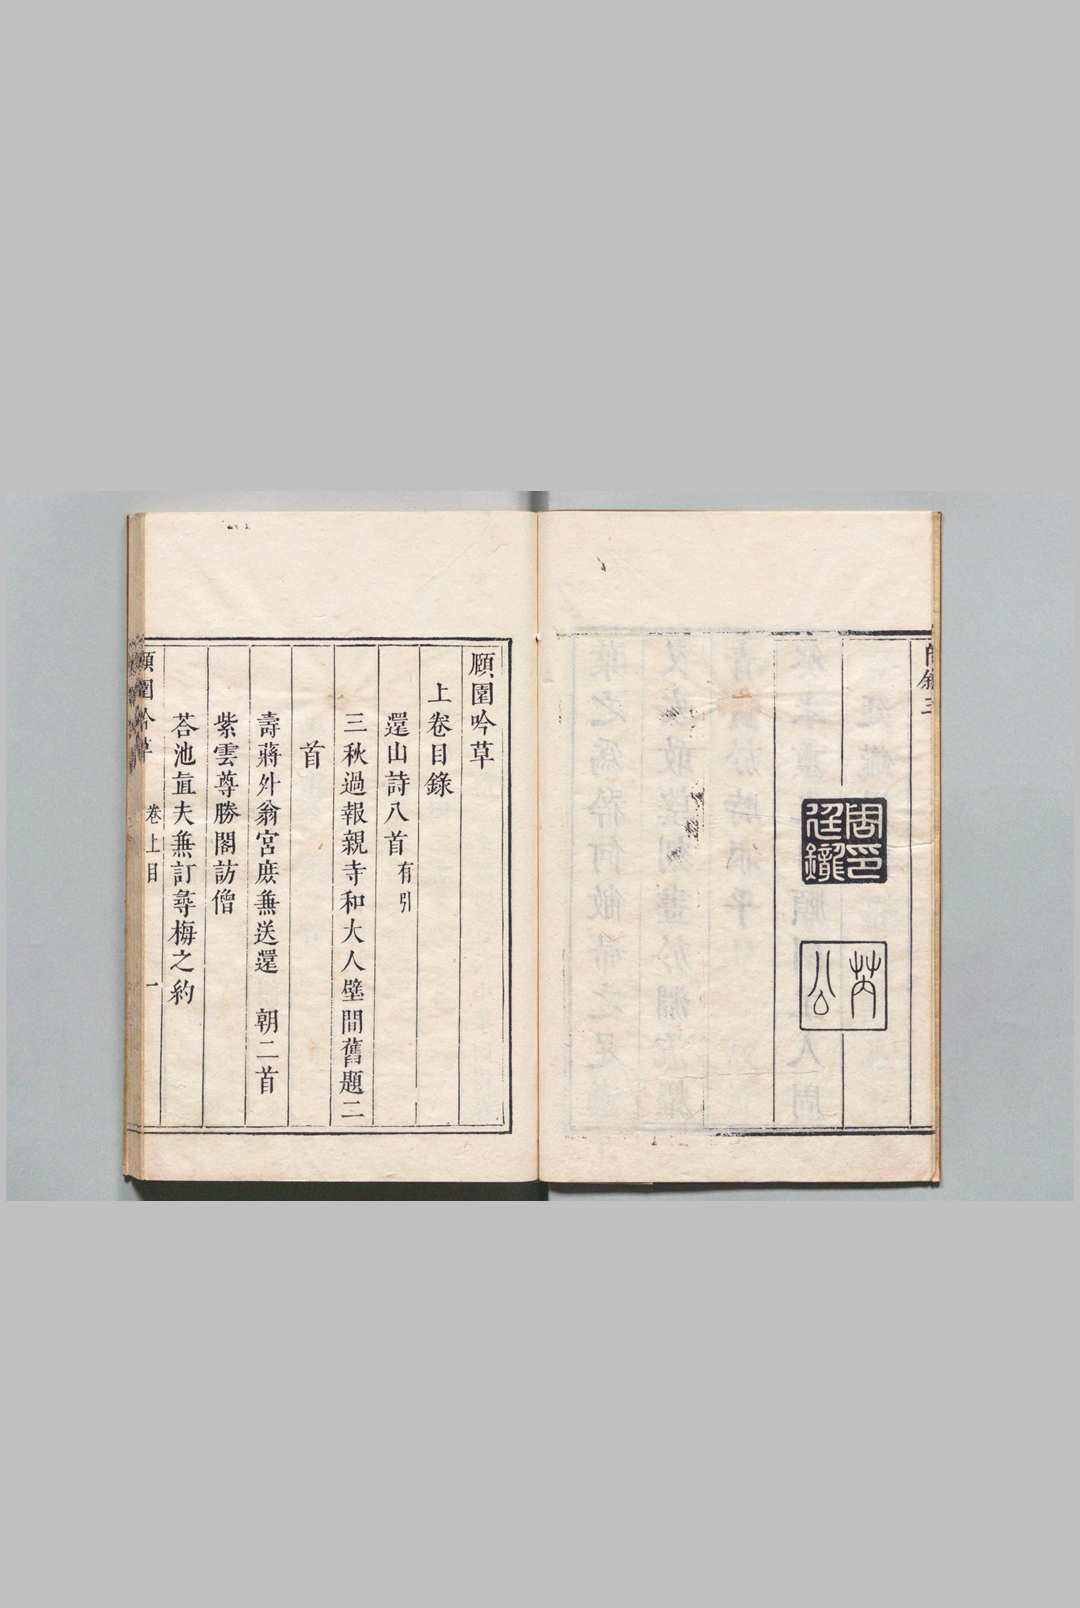 敘三
周印
廷鑨
芮公
願圃吟草
上卷目錄
還山詩八首有引
三秋過報親寺和大人壁間舊題二
首
壽蔣外翁宮庶無送還 朝二首
紫雲尊勝閣訪僧
荅池直夫無訂尋梅之約
願圃吟草 卷上目 一